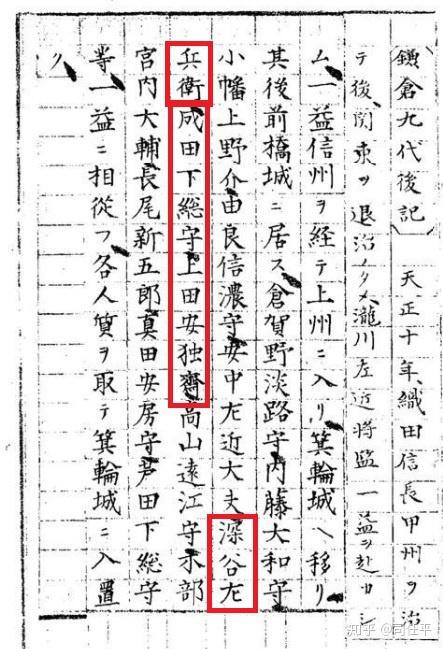 鎌倉九代後記〕 天正十年織田信長甲州ヲ治
テ後、関東ヲ退治ノタメ瀧川左近将監一益ヲ赴カシ
ム一益信州ヲ経テ上州ニ入リ箕輪城ヘ移リ
其後前橋城ニ居ス倉賀野淡路守内藤大和守
小幡上野介由良信濃守安中左近大夫深谷左
兵衛成田下総守上田安独齋高山遠江守木部
宮内大輔長尾新五郎真田安房守芦田下総守
等一益ニ相従フ各人質ヲ取テ箕輪城ニ入置
ク
知乎 @同仕平